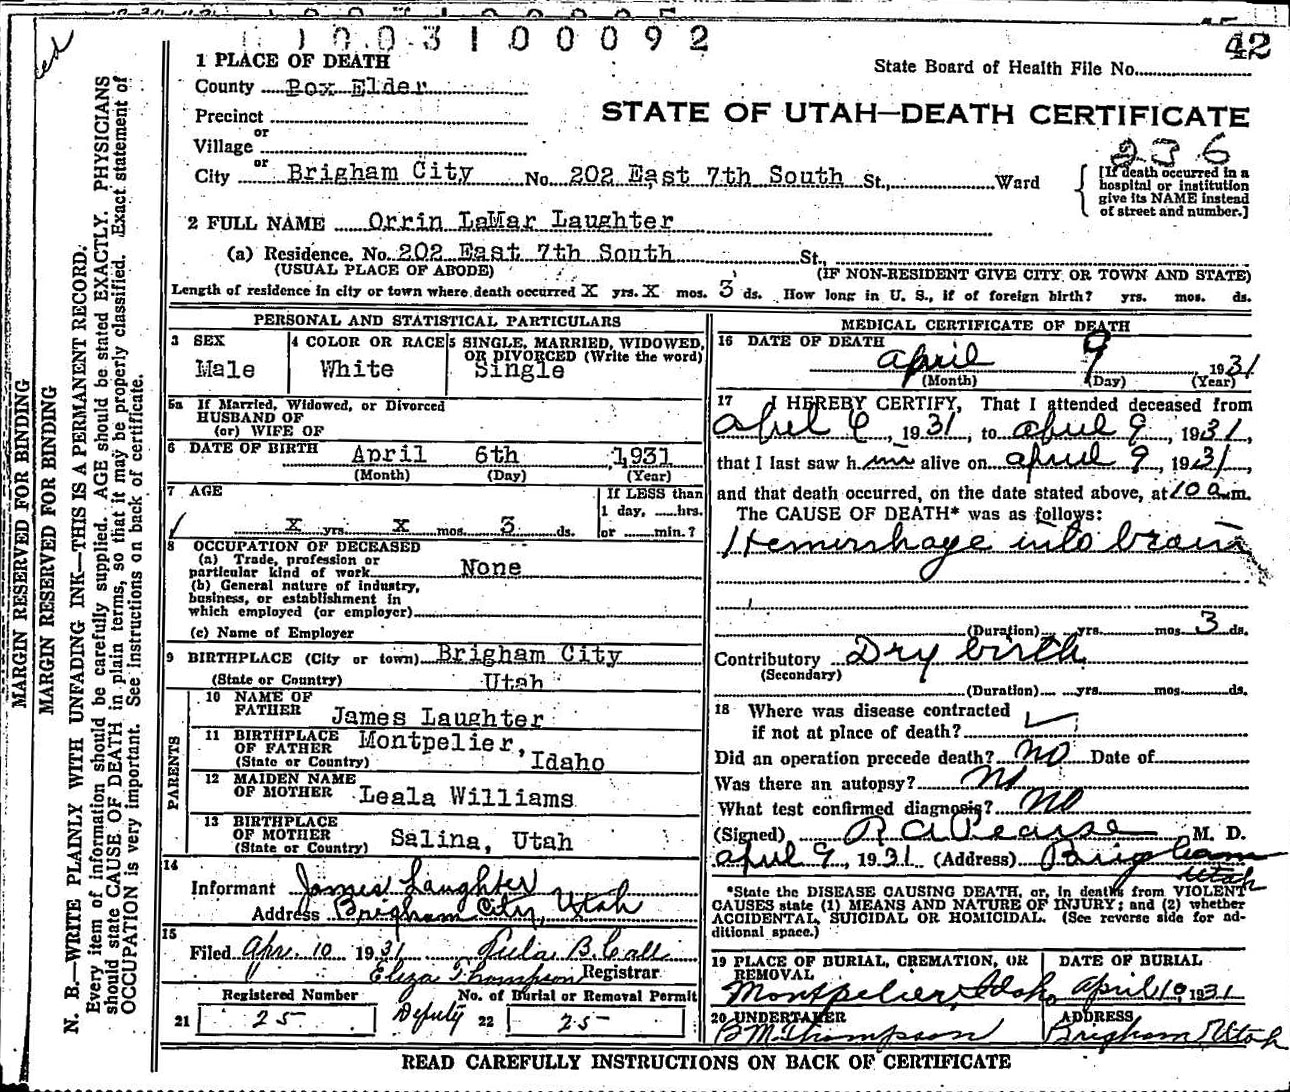 1003100092
42
1 PLACE OF DEATH
State Board of Health File No.
County Box Elder
STATE OF UTAH—DEATH CERTIFICATE
Precinct
or
Village
236
or
City Brigham City No. 202 East 7th South St., Ward
[If death occurred in a hospital or institution give its NAME instead of street and number.]
2 FULL NAME Orrin LaMar Laughter
(a) Residence. No. 202 East 7th South St.,
(USUAL PLACE OF ABODE) (IF NON-RESIDENT GIVE CITY OR TOWN AND STATE)
Length of residence in city or town where death occurred X yrs. X mos. 3 ds. How long in U. S., if of foreign birth? yrs. mos. ds.
PERSONAL AND STATISTICAL PARTICULARS
3 SEX
Male
4 COLOR OR RACE
White
5 SINGLE, MARRIED, WIDOWED,
OR DIVORCED (Write the word)
Single
5a If Married, Widowed, or Divorced
HUSBAND OF
(or) WIFE OF
6 DATE OF BIRTH April 6th 1931
(Month) (Day) (Year)
7 AGE
X yrs. X mos. 3 ds.
If LESS than
1 day, hrs.
or min.?
8 OCCUPATION OF DECEASED
(a) Trade, profession or
particular kind of work None
(b) General nature of industry,
business, or establishment in
which employed (or employer)
(c) Name of Employer
9 BIRTHPLACE (City or town) Brigham City
(State or Country) Utah
PARENTS
10 NAME OF
FATHER James Laughter
11 BIRTHPLACE
OF FATHER Montpelier,
(State or Country) Idaho
12 MAIDEN NAME
OF MOTHER Leala Williams
13 BIRTHPLACE
OF MOTHER Salina, Utah
(State or Country)
14
Informant James Laughter
Address Brigham City, Utah
15
Filed Apr. 10 1931 B. Call
Eliza Thompson Registrar
Deputy
Registered Number
21 25
No. of Burial or Removal Permit
22 25
MEDICAL CERTIFICATE OF DEATH
16 DATE OF DEATH
April 9 1931
(Month) (Day) (Year)
17 I HEREBY CERTIFY, That I attended deceased from
April 6, 1931, to April 9, 1931,
that I last saw him alive on April 9, 1931,
and that death occurred, on the date stated above, at 10 a.m.
The CAUSE OF DEATH* was as follows:
Hemirrhage into brain
(Duration) yrs. mos. 3 ds.
Contributory Dry birth
(Secondary)
(Duration) yrs. mos. ds.
18 Where was disease contracted
if not at place of death?
Did an operation precede death? No Date of
Was there an autopsy? No
What test confirmed diagnosis? No
(Signed) R A Pearse M. D.
April 9, 1931 (Address) Brigham
Utah
*State the DISEASE CAUSING DEATH, or, in deaths from VIOLENT
CAUSES state (1) MEANS AND NATURE OF INJURY; and (2) whether
ACCIDENTAL, SUICIDAL OR HOMICIDAL. (See reverse side for ad-
ditional space.)
19 PLACE OF BURIAL, CREMATION, OR
REMOVAL
Montpelier, Idaho
DATE OF BURIAL
April 10, 1931
20 UNDERTAKER
B M Thompson
ADDRESS
Brigham Utah
READ CAREFULLY INSTRUCTIONS ON BACK OF CERTIFICATE
MARGIN RESERVED FOR BINDING
MARGIN RESERVED FOR BINDING
N. B.—WRITE PLAINLY WITH UNFADING INK—THIS IS A PERMANENT RECORD.
Every item of information should be carefully supplied. AGE should be stated EXACTLY. PHYSICIANS
should state CAUSE OF DEATH in plain terms, so that it may be properly classified. Exact statement of
OCCUPATION is very important. See instructions on back of certificate.